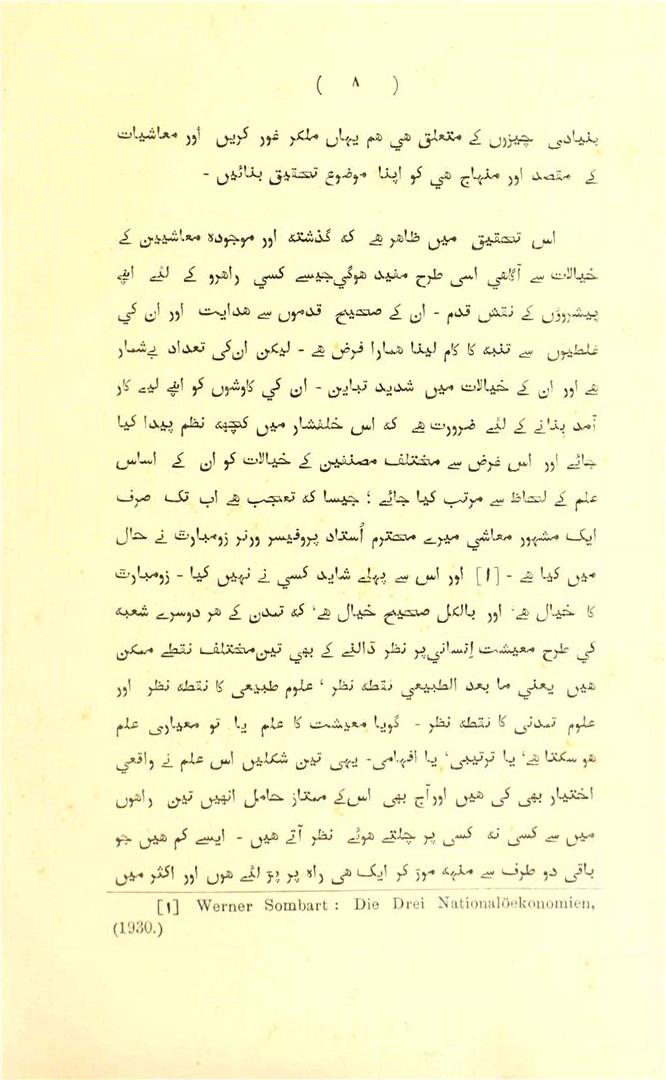 ( ۸ )
بنیادی چیزوں کے متعلق هی هم یہاں ملکر غور کریں اور معاشیات
کے مقصد اور منہاج هی کو اپنا موضوع تحقیق بنائیں -
اس تحقیق میں ظاهر هے که گذشته اور موجوده معاشیین کے
خیالات سے آگاهی اسی طرح مفید هوگی جیسے کسی راهرو کے لئے اپنے
پیشروؤں کے نقش قدم - ان کے صحیح قدموں سے هدایت اور ان کی
غلطیوں سے تنبه کا کام لینا همارا فرض هے - لیکن ان کی تعداد بےشمار
هے اور ان کے خیالات میں شدید تباین - ان کی کاوشوں کو اپنے لیے کار
آمد بنانے کے لئے ضرورت هے که اس خلفشار میں کچهه نظم پیدا کیا
جائے اور اس غرض سے مختلف مصنفین کے خیالات کو ان کے اساس
علم کے لحاظ سے مرتب کیا جائے ؛ جیسا که تعجب هے اب تک صرف
ایک مشہور معاشی میرے محترم اُستاد پروفیسر ورنر زومبارٹ نے حال
میں کیا هے - [۱] اور اس سے پہلے شاید کسی نے نہیں کیا - زومبارٹ
کا خیال هے، اور بالکل صحیح خیال هے، که تمدن کے هر دوسرے شعبه
کی طرح معیشت اِنسانی پر نظر ڈالنے کے بھی تین مختلف نقطے ممکن
هیں یعنی ما بعد الطبیعی نقطه نظر ، علوم طبیعی کا نقطه نظر اور
علوم تمدنی کا نقطه نظر - گویا معیشت کا علم یا تو معیاری علم
هو سکتا هے، یا ترتیبی، یا افہامی - یہی تین شکلیں اس علم نے واقعی
اختیار بھی کی هیں اور آج بھی اس کے ممتاز حامل انھیں تین راهوں
میں سے کسی نه کسی پر چلتے هوئے نظر آتے هیں - ایسے کم هیں جو
باقی دو طرف سے منہه موڑ کر ایک هی راه پر پڑ لئے هوں اور اکثر میں
[۱] Werner Sombart : Die Drei Nationalöekonomien,
(1930.)